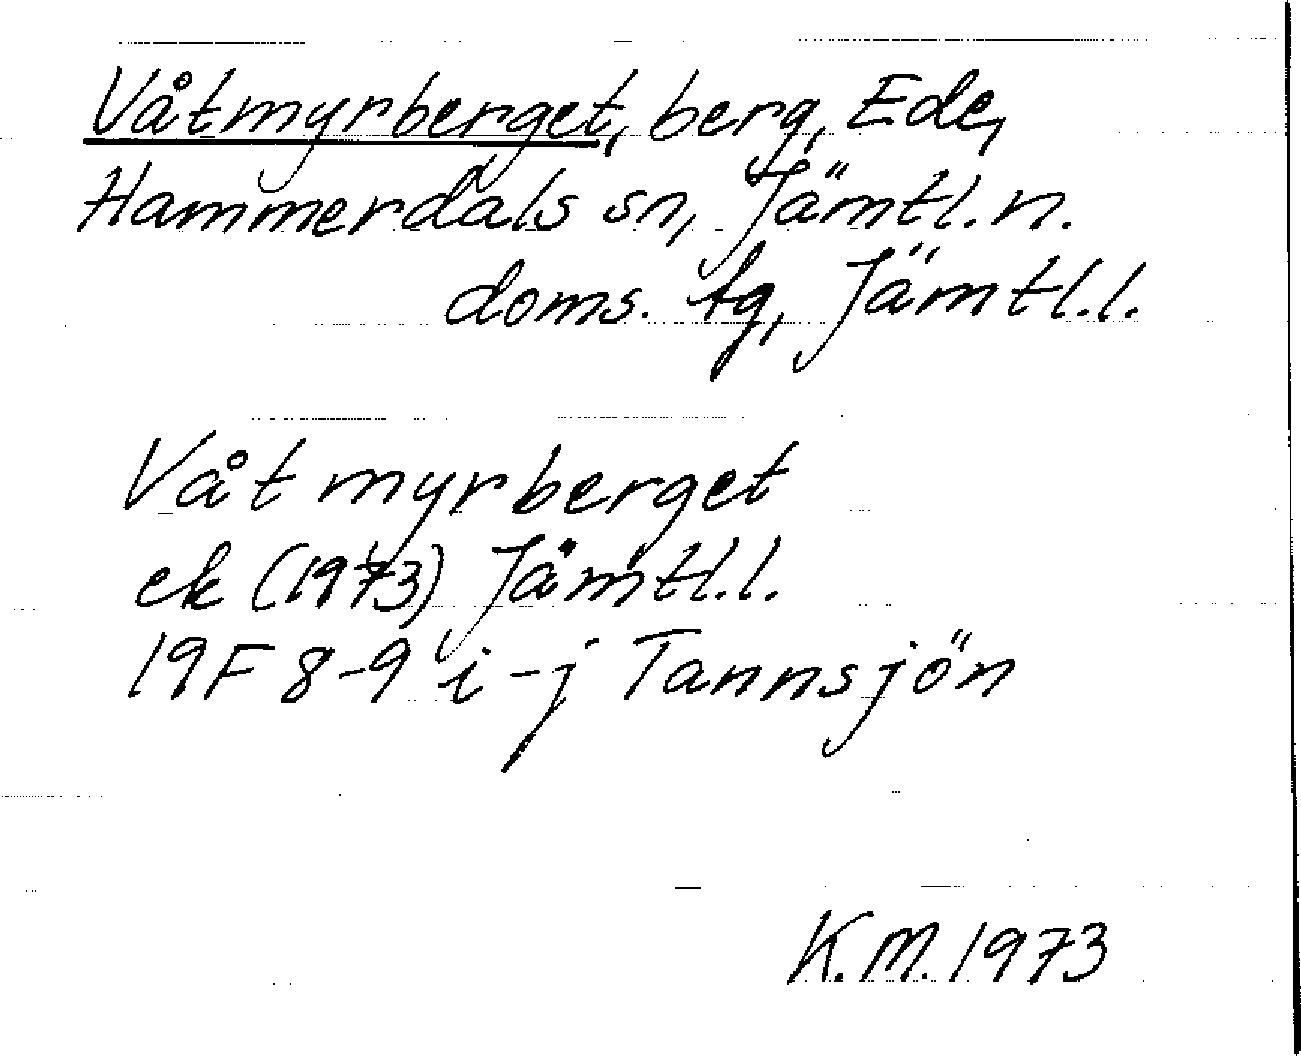 Våtmyrberget, berg, Ede,
Hammerdals sn, Jämtl. n.
doms. tg, Jämtl.l.
Våtmyrberget
ek (1973) Jämtl.l.
19F 8-9 i-j Tannsjön
K.M. 1973